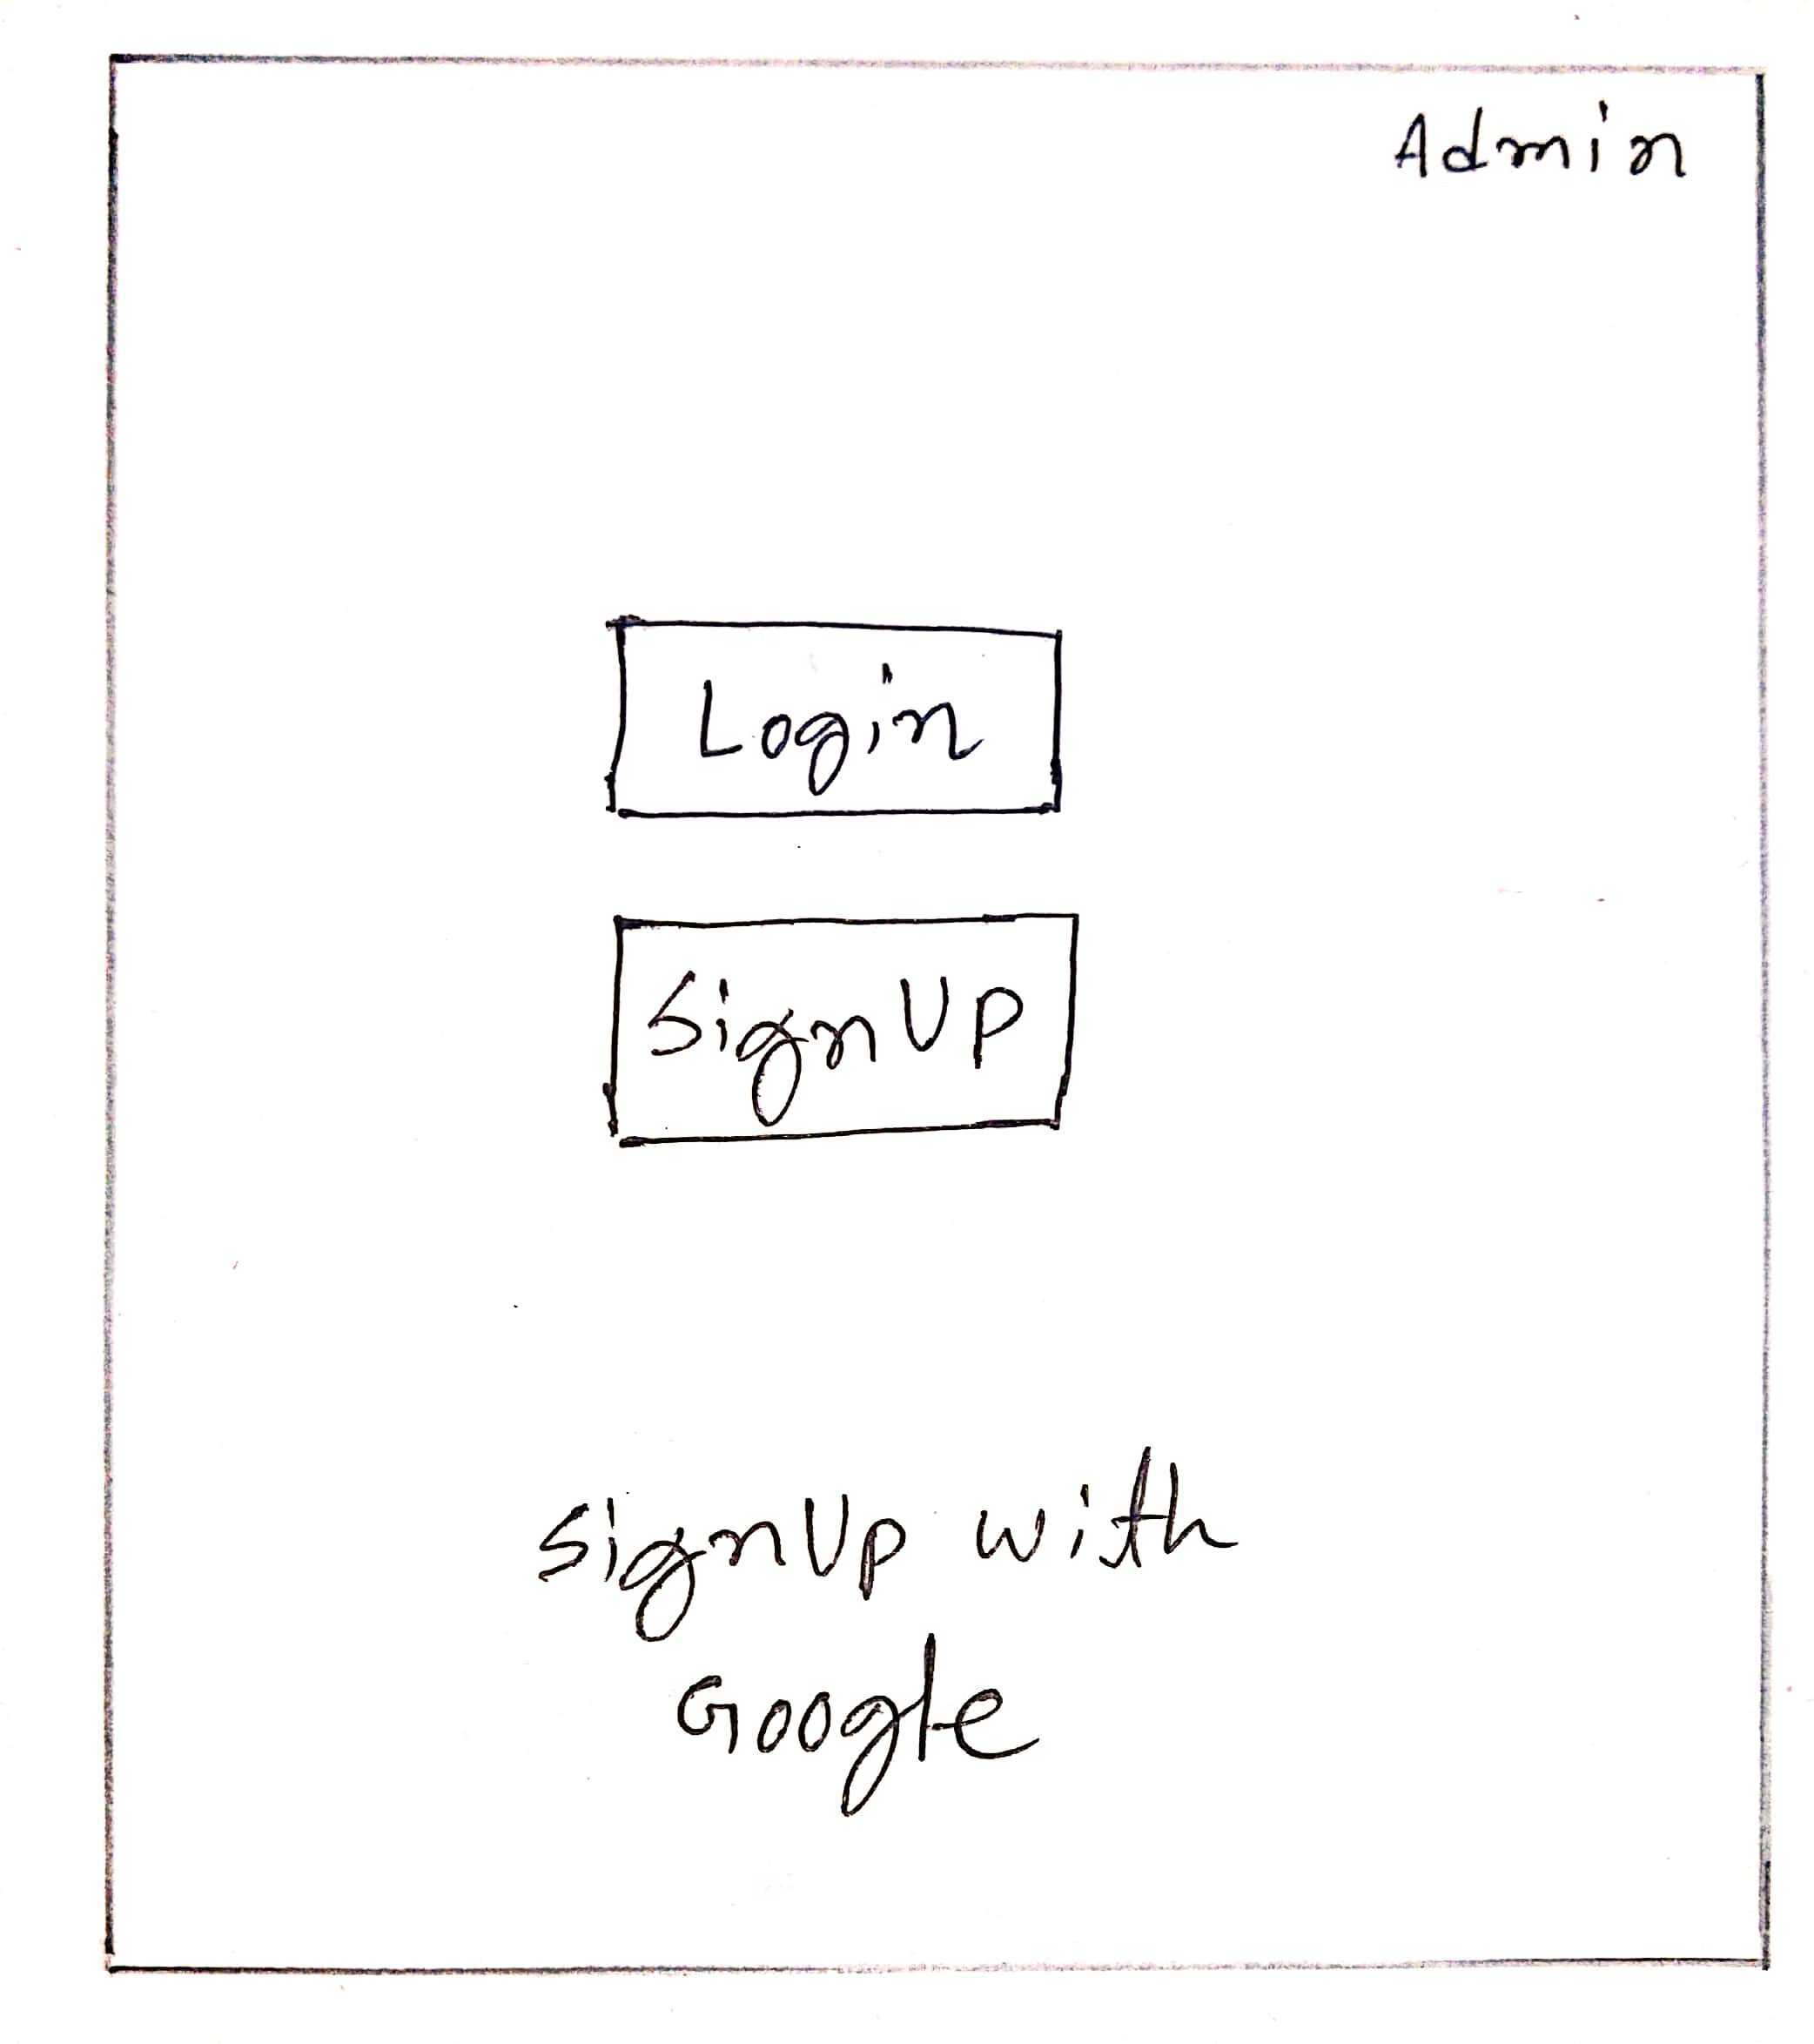 Admin
Login
SignUp
SignUp with
Google